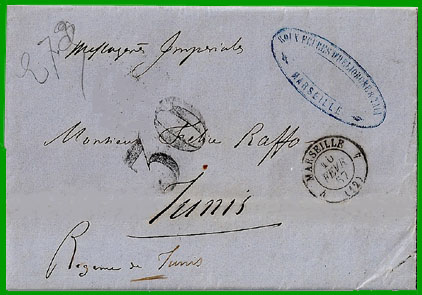 278
Messageries Imperiales
MARSEILLE
Monsieur Raffo
30
MARSEILLE
10
FEVR
67
(12)
Tunis
Regence de Tunis